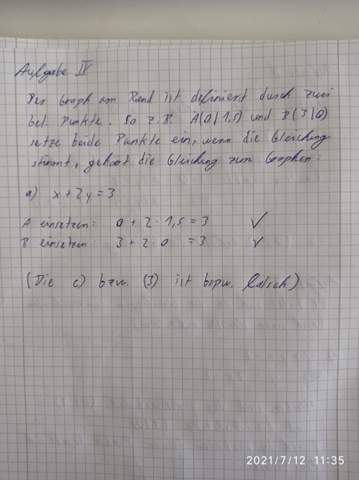 Aufgabe IV
Der Graph am Rand ist definiert durch zwei
bel. Punkte. So z.B. A(0|1,5) und B(3|0)
setze beide Punkte ein, wenn die Gleichung
stimmt, gehört die Gleichung zum Graphen.
a) x + 2y = 3
A einsetzen: 0 + 2 · 1,5 = 3 ✓
B einsetzen 3 + 2 · 0 = 3 ✓
(Die c) bzw. (3) ist bspw. falsch)
2021/7/12 11:35